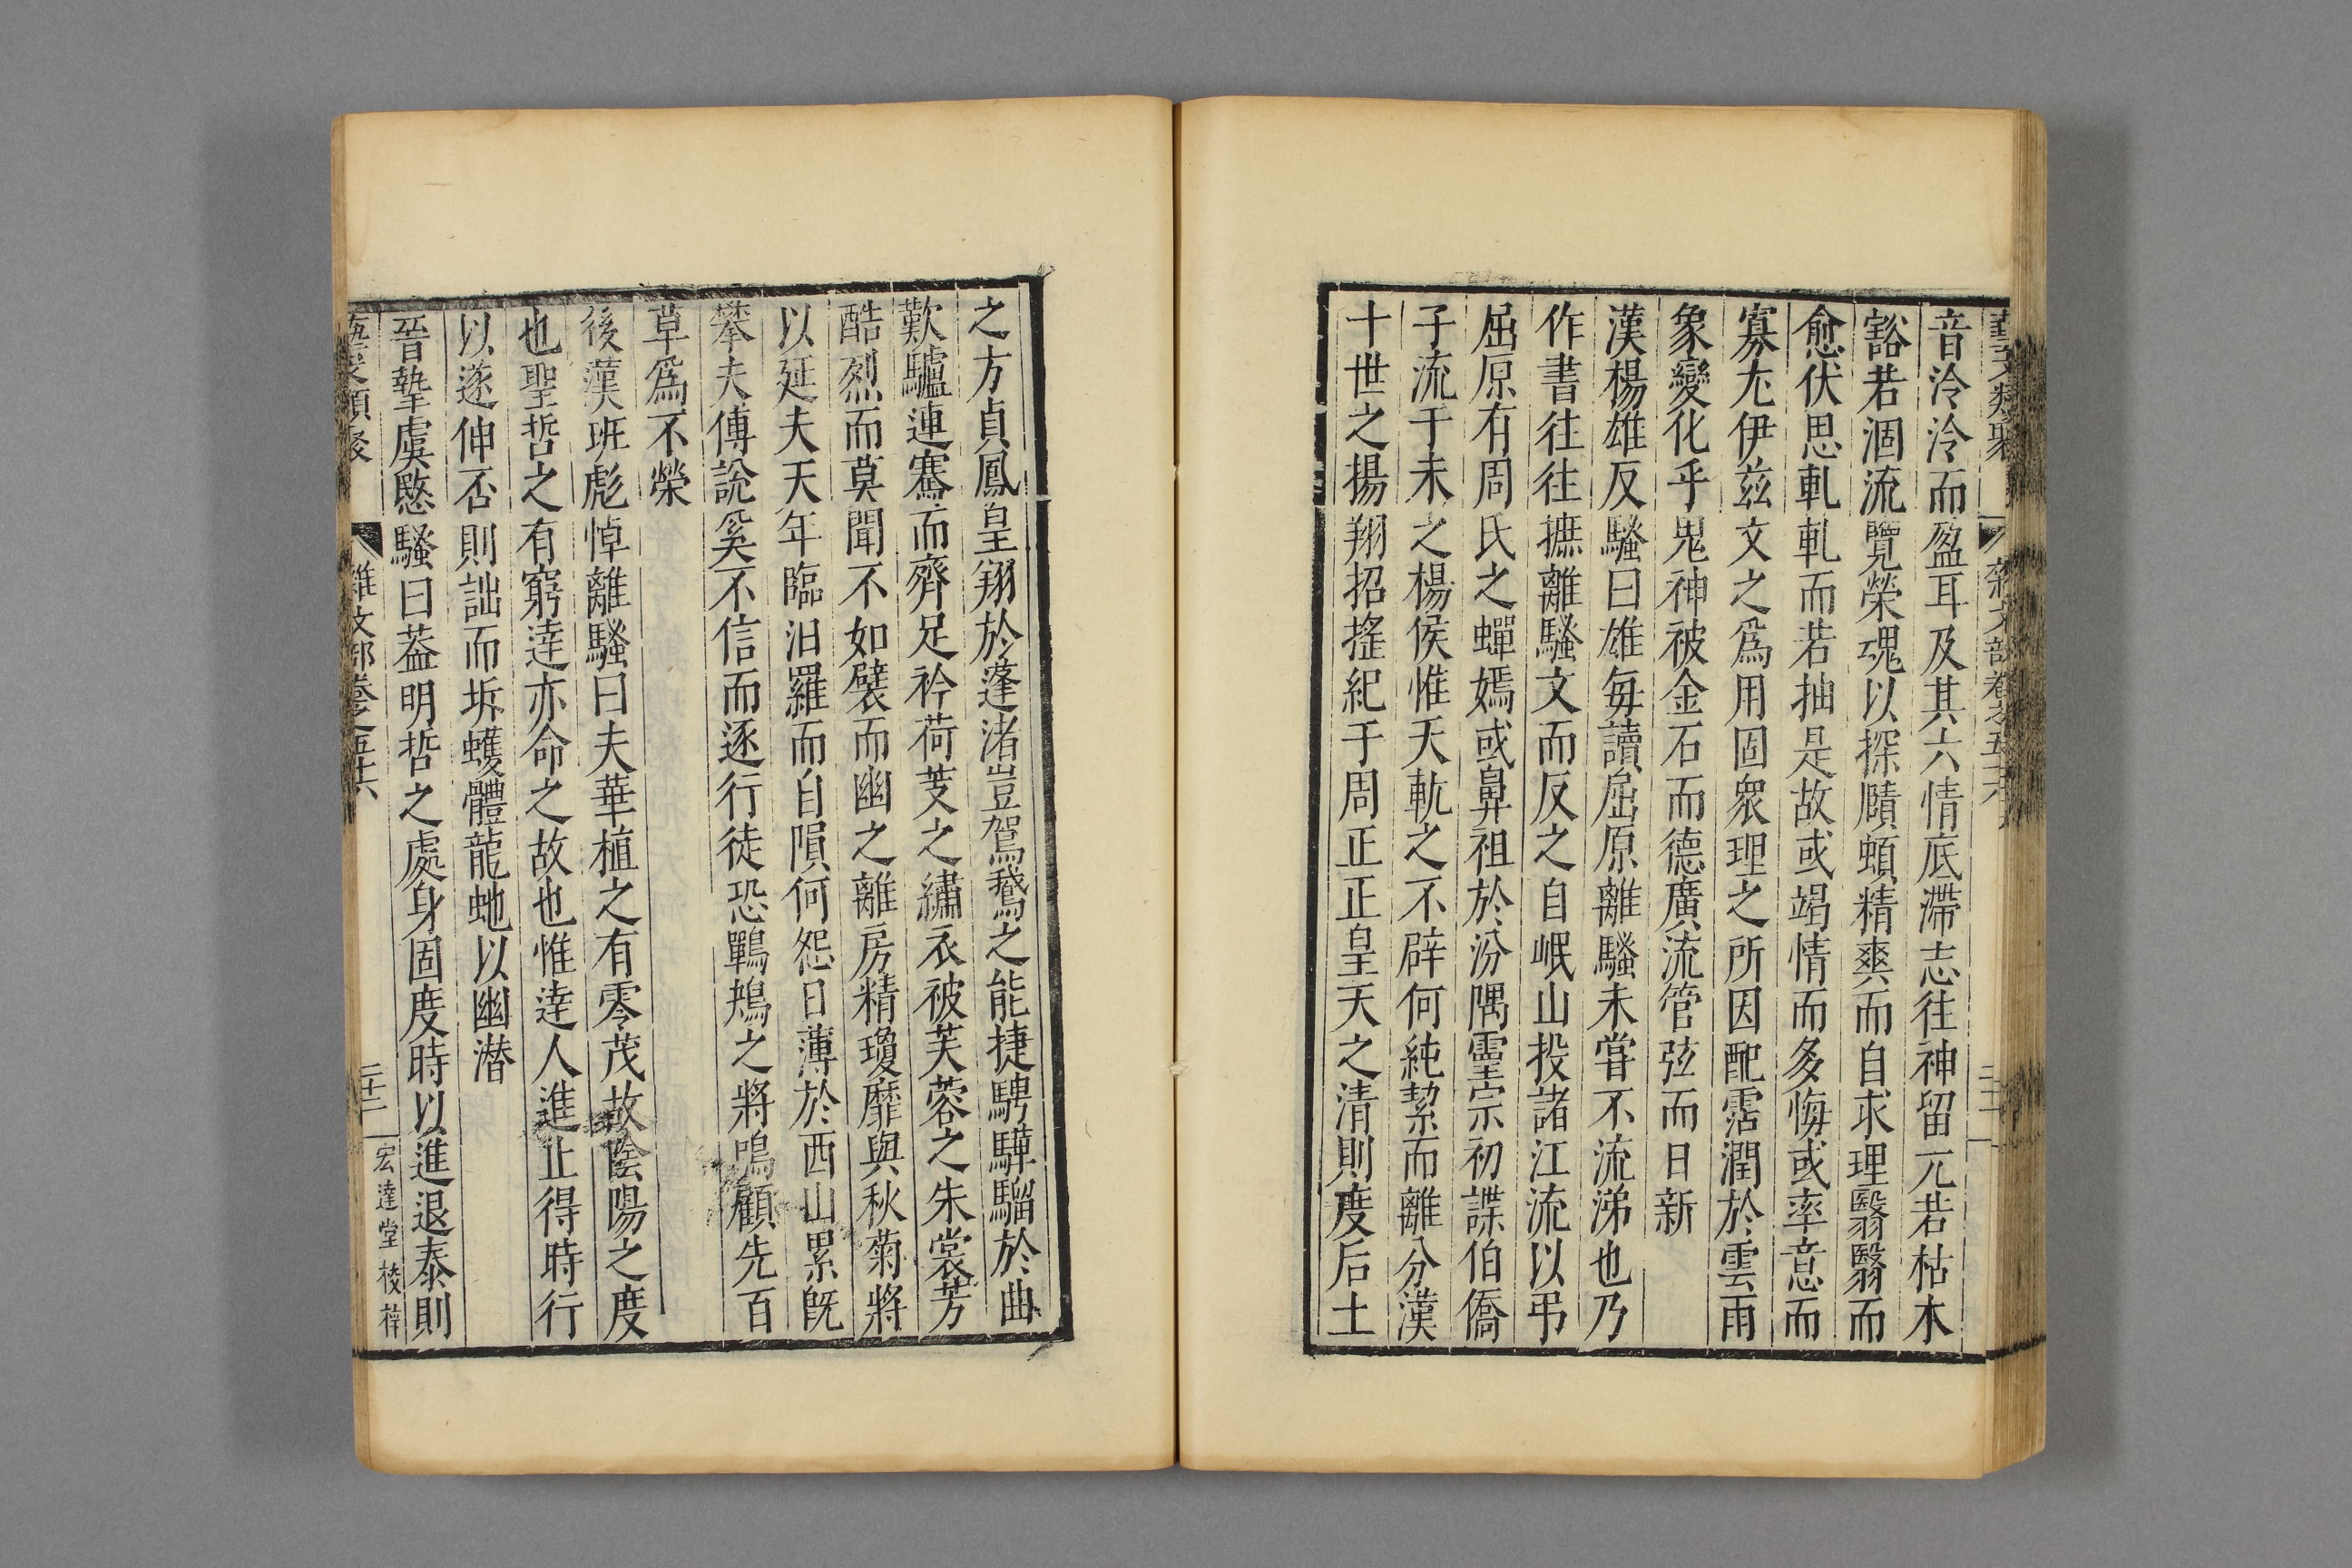 藝文類聚 雜文部卷之五十六
音泠泠而盈耳及其六情底滯志往神留兀若枯木
豁若涸流覽榮魂以探賾頓精爽而自求理翳翳而
愈伏思軋軋而若抽是故或竭情而多悔或率意而
寡尤伊茲文之爲用固衆理之所因配霑潤於雲雨
象變化乎鬼神被金石而德廣流管弦而日新
漢楊雄反騷曰雄每讀屈原離騷未嘗不流涕也乃
作書往往摭離騷文而反之自岷山投諸江流以弔
屈原有周氏之蟬嫣或鼻祖於汾隅靈宗初諜伯僑
子流于末之楊侯惟天軌之不辟何純絜而離分漢
十世之揚翔招搖紀于周正正皇天之清則度后土
之方貞鳳皇翔於蓬渚豈鴐鵝之能捷騁驊騮於曲
歎驢連騫而齊足衿荷芰之繡衣被芙蓉之朱裳芳
酷烈而莫聞不如襞而幽之離房精瓊靡與秋菊將
以延夫天年臨汨羅而自隕何怨日薄於西山累旣
攀夫傅說奚不信而逐行徒恐鷤鴂之將鳴顧先百
草爲不榮
後漢班彪悼離騷曰夫華植之有零茂故陰陽之度
也聖哲之有窮達亦命之故也惟達人進止得時行
以遂伸否則詘而坼蠖體龍虵以幽潛
晉摯虞愍騷曰葢明哲之處身固度時以進退泰則
類聚 雜文部卷之五十六 二十二 宏達堂校葊